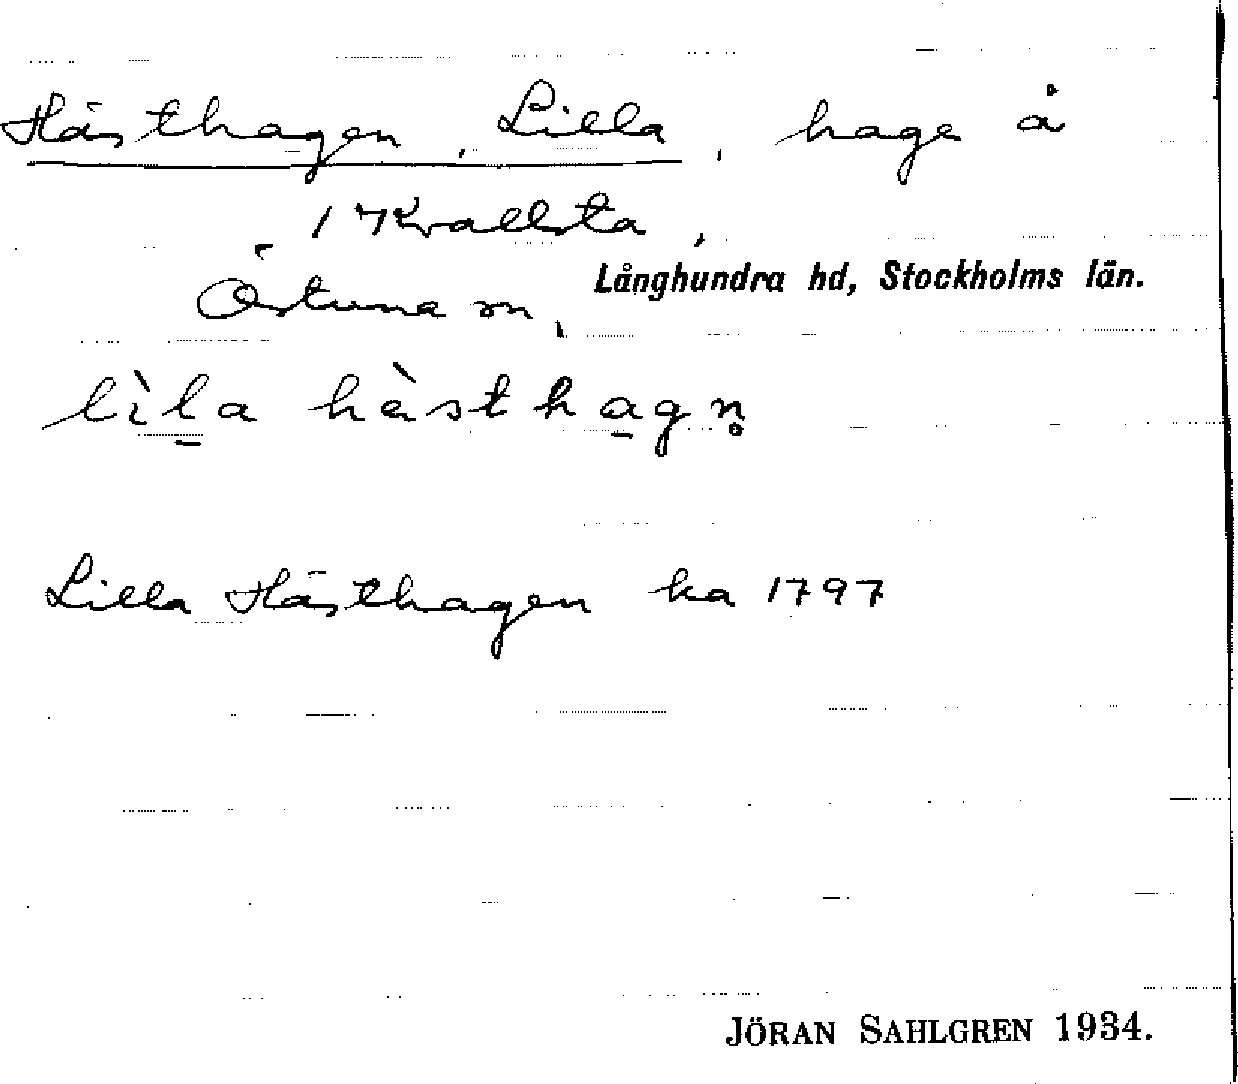 Hästhagen, Lilla, hage å
1 Krallsta,
Östuna sn, Långhundra hd, Stockholms län.
lìla hàsthagn̥
Lilla Hästhagen ka 1797
JÖRAN SAHLGREN 1934.